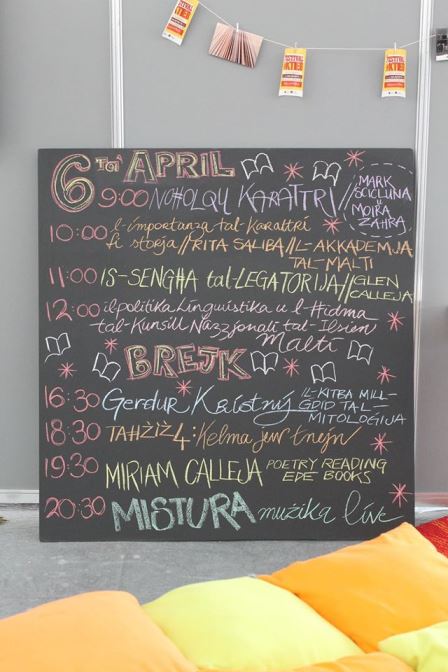 6 ta' APRIL
9:00 NOĦOLQU KARATTRI // MARK SCICLUNA u MOIRA ZAHRA
10:00 l-importanza tal-karattri
fi storja // RITA SALIBA // L-AKKADEMJA
TAL-MALTI
11:00 IS-SENGĦA tal-LEGATORIJA // GLEN CALLEJA
12:00 il politika Lingwistika u l-Ħidma
tal-Kunsill Nazzjonali tal-Ilsien
Malti
BREJK
16:30 Gerdur Kristný IL-KITBA MILL-
ĠDID TAL-
MITOLOĠIJA
18:30 TAĦŻIŻ 4: Kelma jew tnejn
19:30 MIRIAM CALLEJA POETRY READING
EDE BOOKS
20:30 MISTURA mużika live